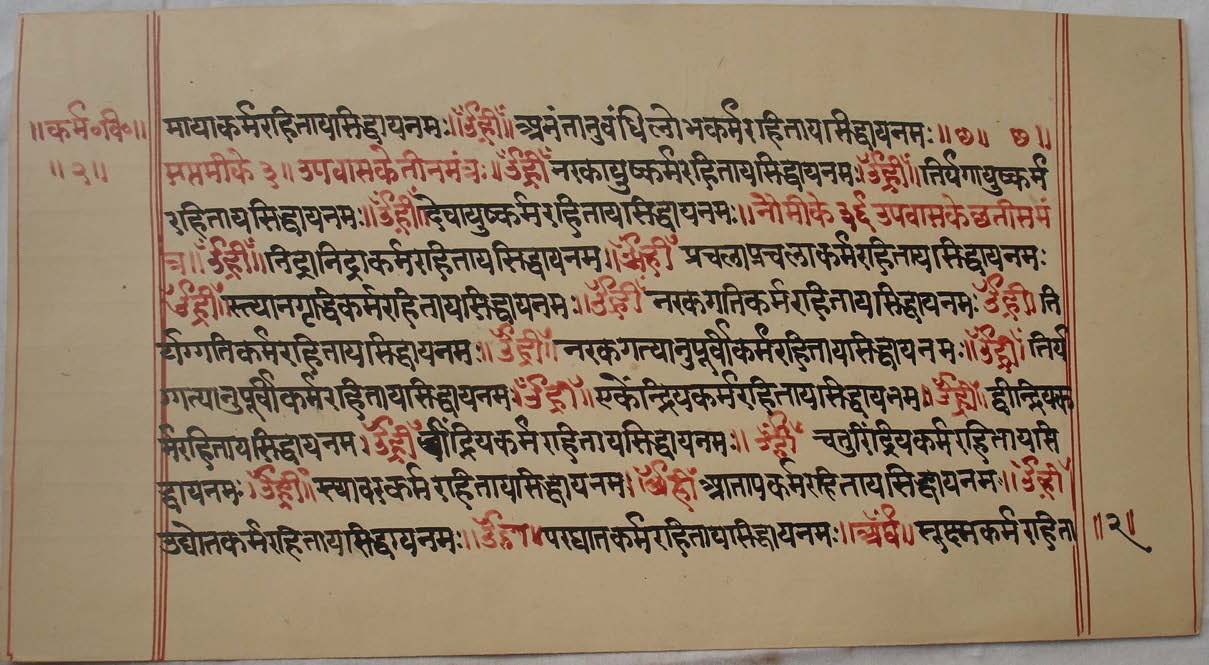 ॥कर्म॰वि॰॥ मायाकर्मरहितायसिद्धायनमः॥ॐह्रीं॥अनंतानुवंधिलोभकर्मरहितायसिद्धायनमः॥छ॥ छ॥
॥२॥ सप्तमीके३॥उपवासकेतीनमंत्रः॥ॐह्रीं॥नरकायुष्कर्मरहितायसिद्धायनमः॥ॐह्रीं॥तिर्यगायुष्कर्म
रहितायसिद्धायनमः॥ॐह्रीं॥देवायुष्कर्मरहितायसिद्धायनमः॥नौमीके३६उपवासकेछत्तीसमं
त्र॥ॐह्रीं॥निद्रानिद्राकर्मरहितायसिद्धायनमः॥ॐह्रीं प्रचलाप्रचलाकर्मरहितायसिद्धायनमः
ॐह्रीं॥स्त्यानगृद्धिकर्मरहितायसिद्धायनमः॥ॐह्रीं नरकगतिकर्मरहितायसिद्धायनमः ॐह्रीं॥ति
र्यग्गतिकर्मरहितायसिद्धायनमः॥ॐह्रीं॥नरकगत्यानुपूर्वीकर्मरहितायसिद्धायनमः॥ॐह्रीं॥तिर्य
ग्गत्यानुपूर्वीकर्मरहितायसिद्धायनमः॥ॐह्रीं॥एकेंन्द्रियकर्मरहितायसिद्धायनमः॥ॐह्रीं॥द्वीन्द्रियक
र्मरहितायसिद्धायनमः॥ॐह्रीं त्रींद्रियकर्मरहितायसिद्धायनमः॥ॐह्रीं चतुरिंद्रियकर्मरहितायसि
द्धायनमः॥ॐह्रीं॥स्थावरकर्मरहितायसिद्धायनमः॥ॐह्रीं आतापकर्मरहितायसिद्धायनमः॥ॐह्रीं
उद्योतकर्मरहितायसिद्धायनमः॥ॐह्रीं॥परघातकर्मरहितायसिद्धायनमः॥ सूक्ष्मकर्मरहिता ॥२॥